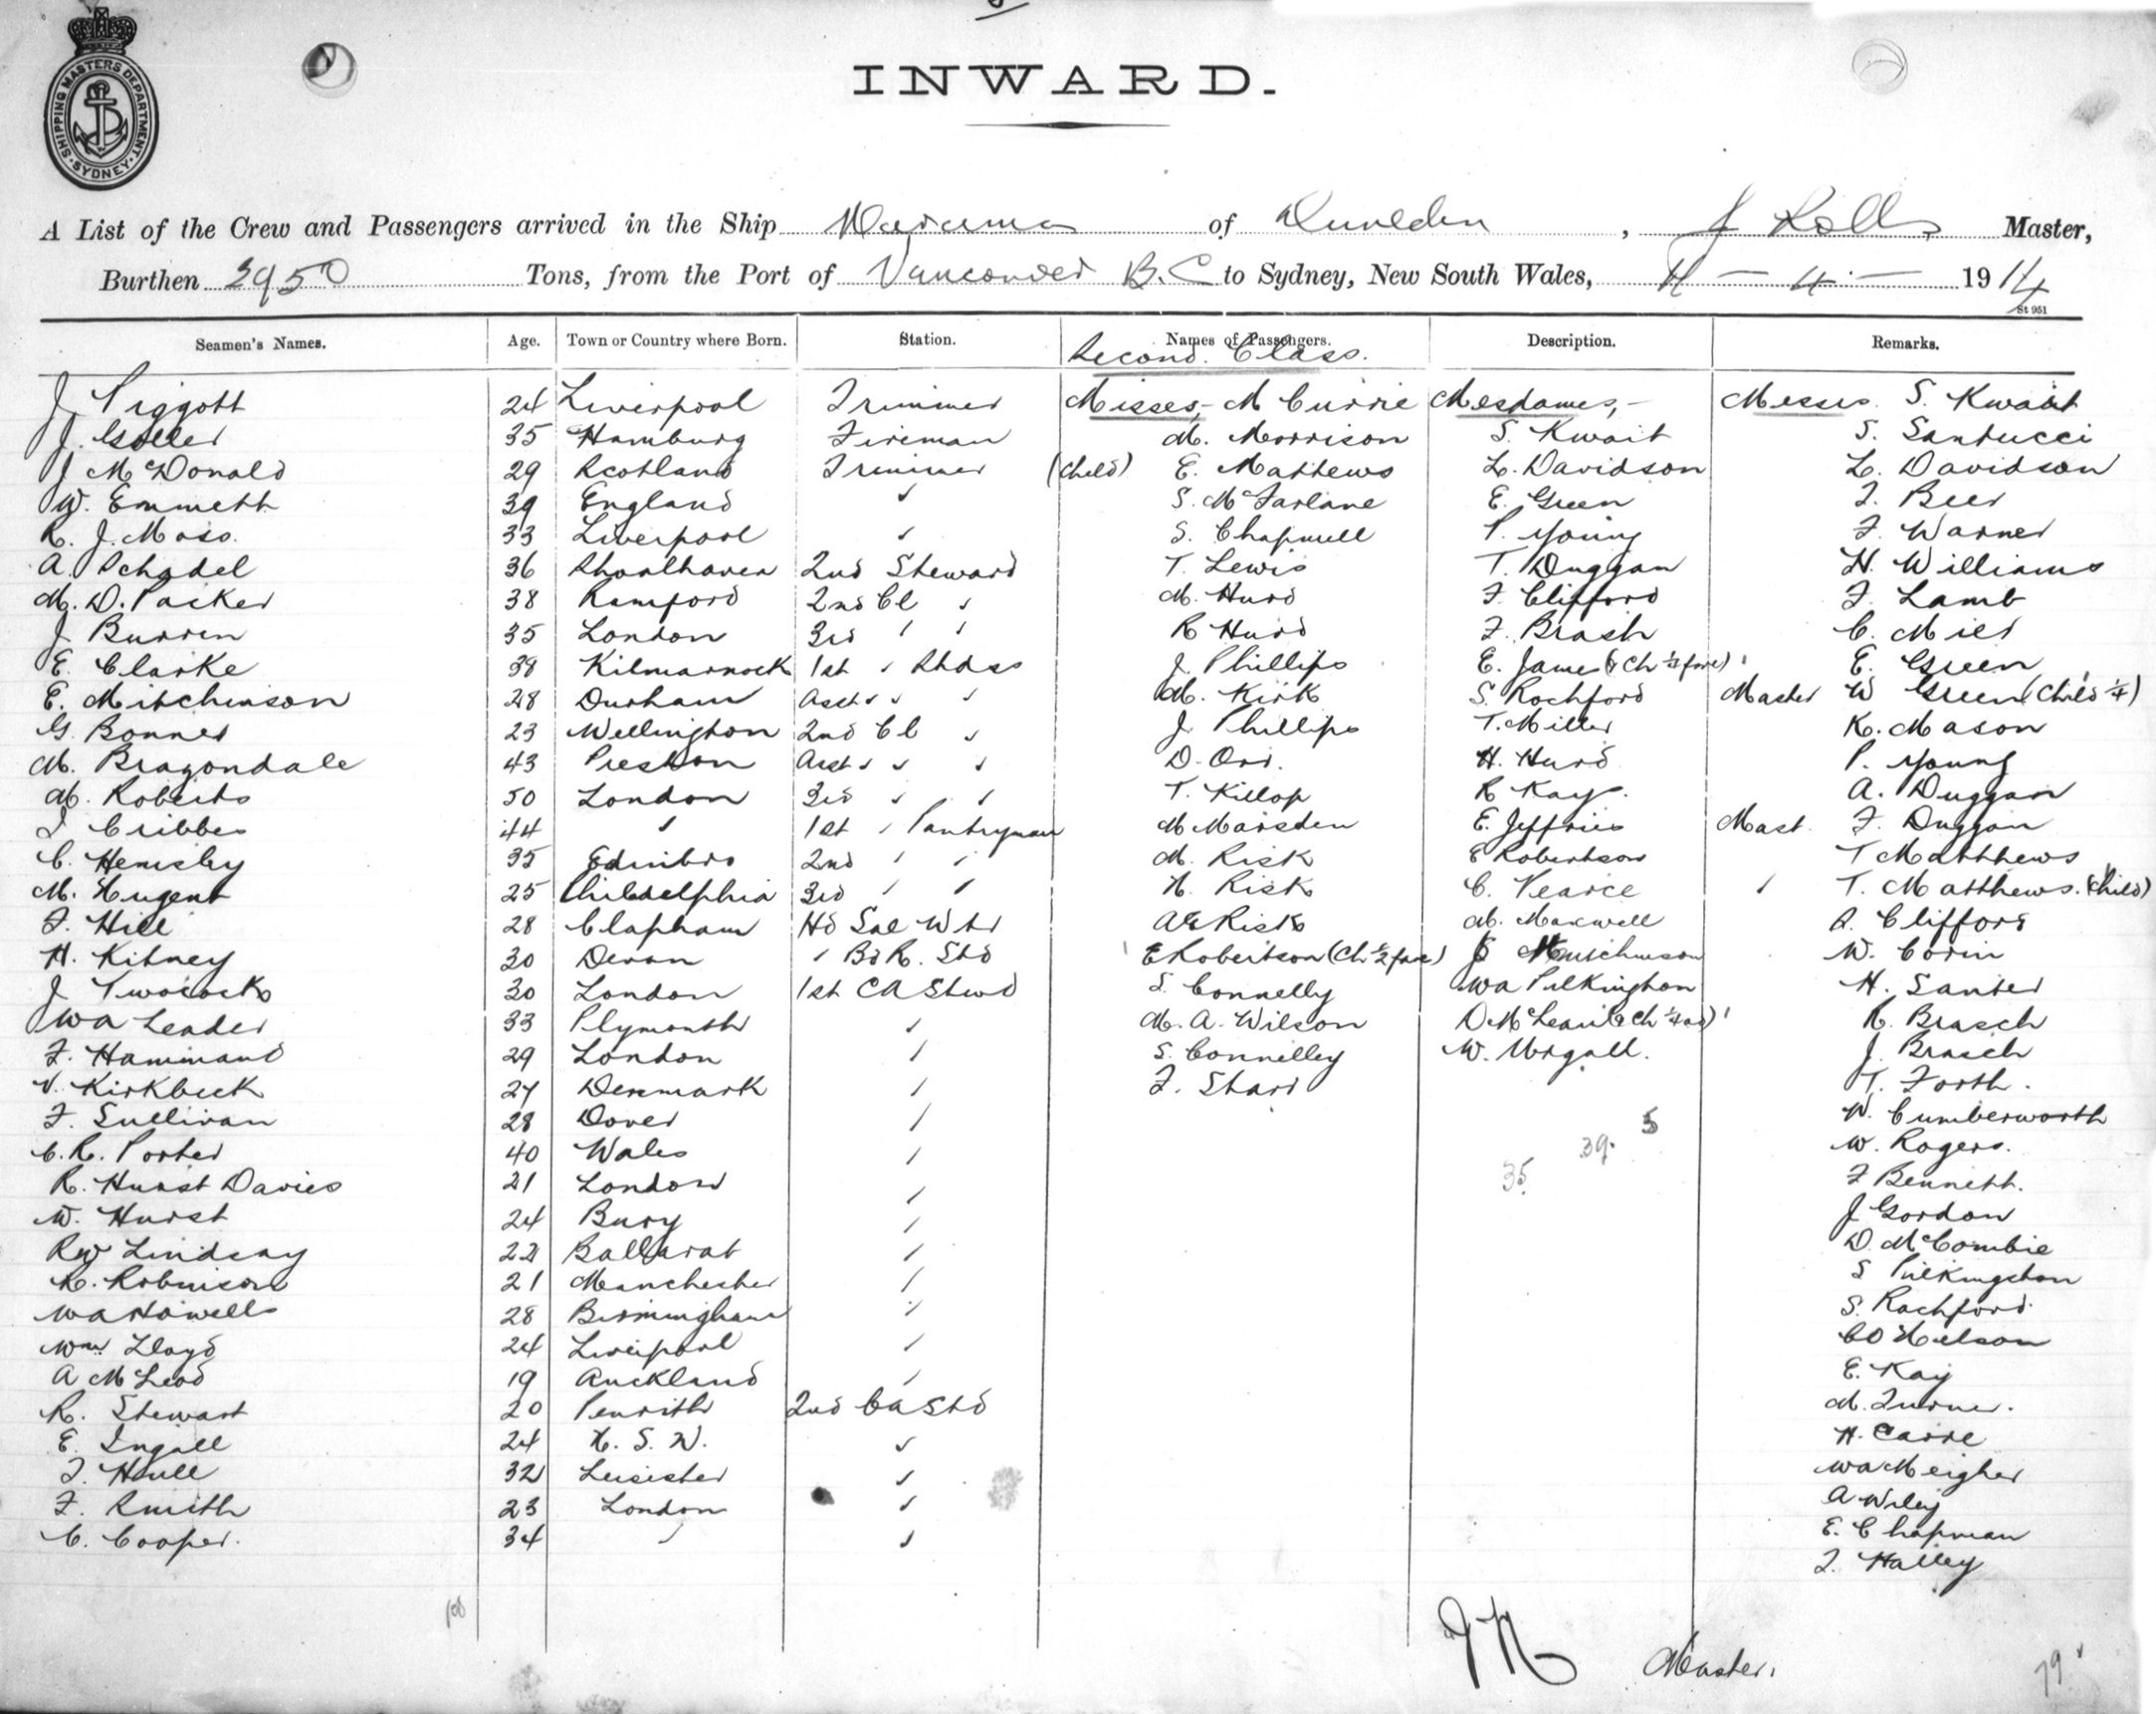 SHIPPING MASTERS DEPARTMENT
SYDNEY
INWARD.
A List of the Crew and Passengers arrived in the Ship Marama of Dunedin, J Rolls Master,
Burthen 3950 Tons, from the Port of Vancouver B.C to Sydney, New South Wales, 4 - 1914
St 951
Seamen's Names. Age. Town or Country where Born. Station. Names of Passengers. Description. Remarks.
Second Class.
J. Piggott 24 Liverpool Trimmer Misses,- M Currie Mesdames,- Messrs. S. Kwait
J. 35 Hamburg Fireman M. Morrison S. Kwait S. Santucci
J McDonald 29 Scotland Trimmer (Child) E. Mathews L. Davidson L. Davidson
W. Emmett 39 England " S. McFarlane E. Green
R. J. Moss. 33 Liverpool " S. P. Young F. Warner
A. Schadel 36 Shoalhaven 2nd Steward T. Lewis T. Duggan H. Williams
M. D. Packer 38 Ramford 2nd Cl " M. Hurd F. Clifford F. Lamb
J Burren 35 London 3rd " " R Hurd F. Brash C. Mier
E. Clarke 38 Kilmarnock 1st " Stdss J. Phillips E. James E. Green
E. Mitchinson 28 Durham Asst " " " M. Kirk S. Rochford Master W Green (Child ¼)
G. Bonner 23 Wellington 2nd Cl " J. Phillips T. Miller R. Mason
M. Bragondale 43 Preston Asst " " " D. Orr. H. Hurd P. Young
M. Roberts 50 London 3rd " " T. Killop R Kay. A. Duggan
Cribbes 44 " 1st " Pantryman M Marsden E. Jeffries Mast. F. Duggan
C. Hemsley 35 Edinbro 2nd " " M. Risk E Robertson T Matthews
M. Nugent 25 Philadelphia 3rd " " N. Risk C. Pearce " T. Matthews. (Child)
F. Hill 28 Clapham Hd Sal Wtr AE Risk M. Maxwell A. Clifford
H. Kitney 30 Devon " Bd R. Std E Robertson (Ch ½ fare) W. Corin
J Twocock 30 London 1st CA Stwd S. Connelly WA Pilkington H. Santer
WA Leader 33 Plymouth " M. A. Wilson R. Brasch
F. Hammond 29 London " S. Connelley W. J. Brasch
V. Kirkbeck 27 Denmark " F. Starr T. Forth.
F. Sullivan 28 Dover " W. Cumberworth
C. R. Porter 40 Wales " 35 39. 5 W. Rogers.
R. Hurst Davies 21 London " F Bennett.
W. Hurst 24 Bury " J Gordon
RW Lindsay 22 Ballarat " D. McCombie
R. Robinson 21 Manchester " S Pilkington
WA Howells 28 Birmingham " S. Rochford
Wm Lloyd 24 Liverpool " CO Nelson
A McLeod 19 Auckland " E. Kay
R. Stewart 20 Penrith 2nd Ca Std M. Turner.
E. Ingall 24 N. S. W. " H. Carre
J. Hull 32 Leicester " WA Meigher
F. Smith 23 London " A Wiley
C. Cooper. 34 " " E. Chapman
Halley
Master.
79